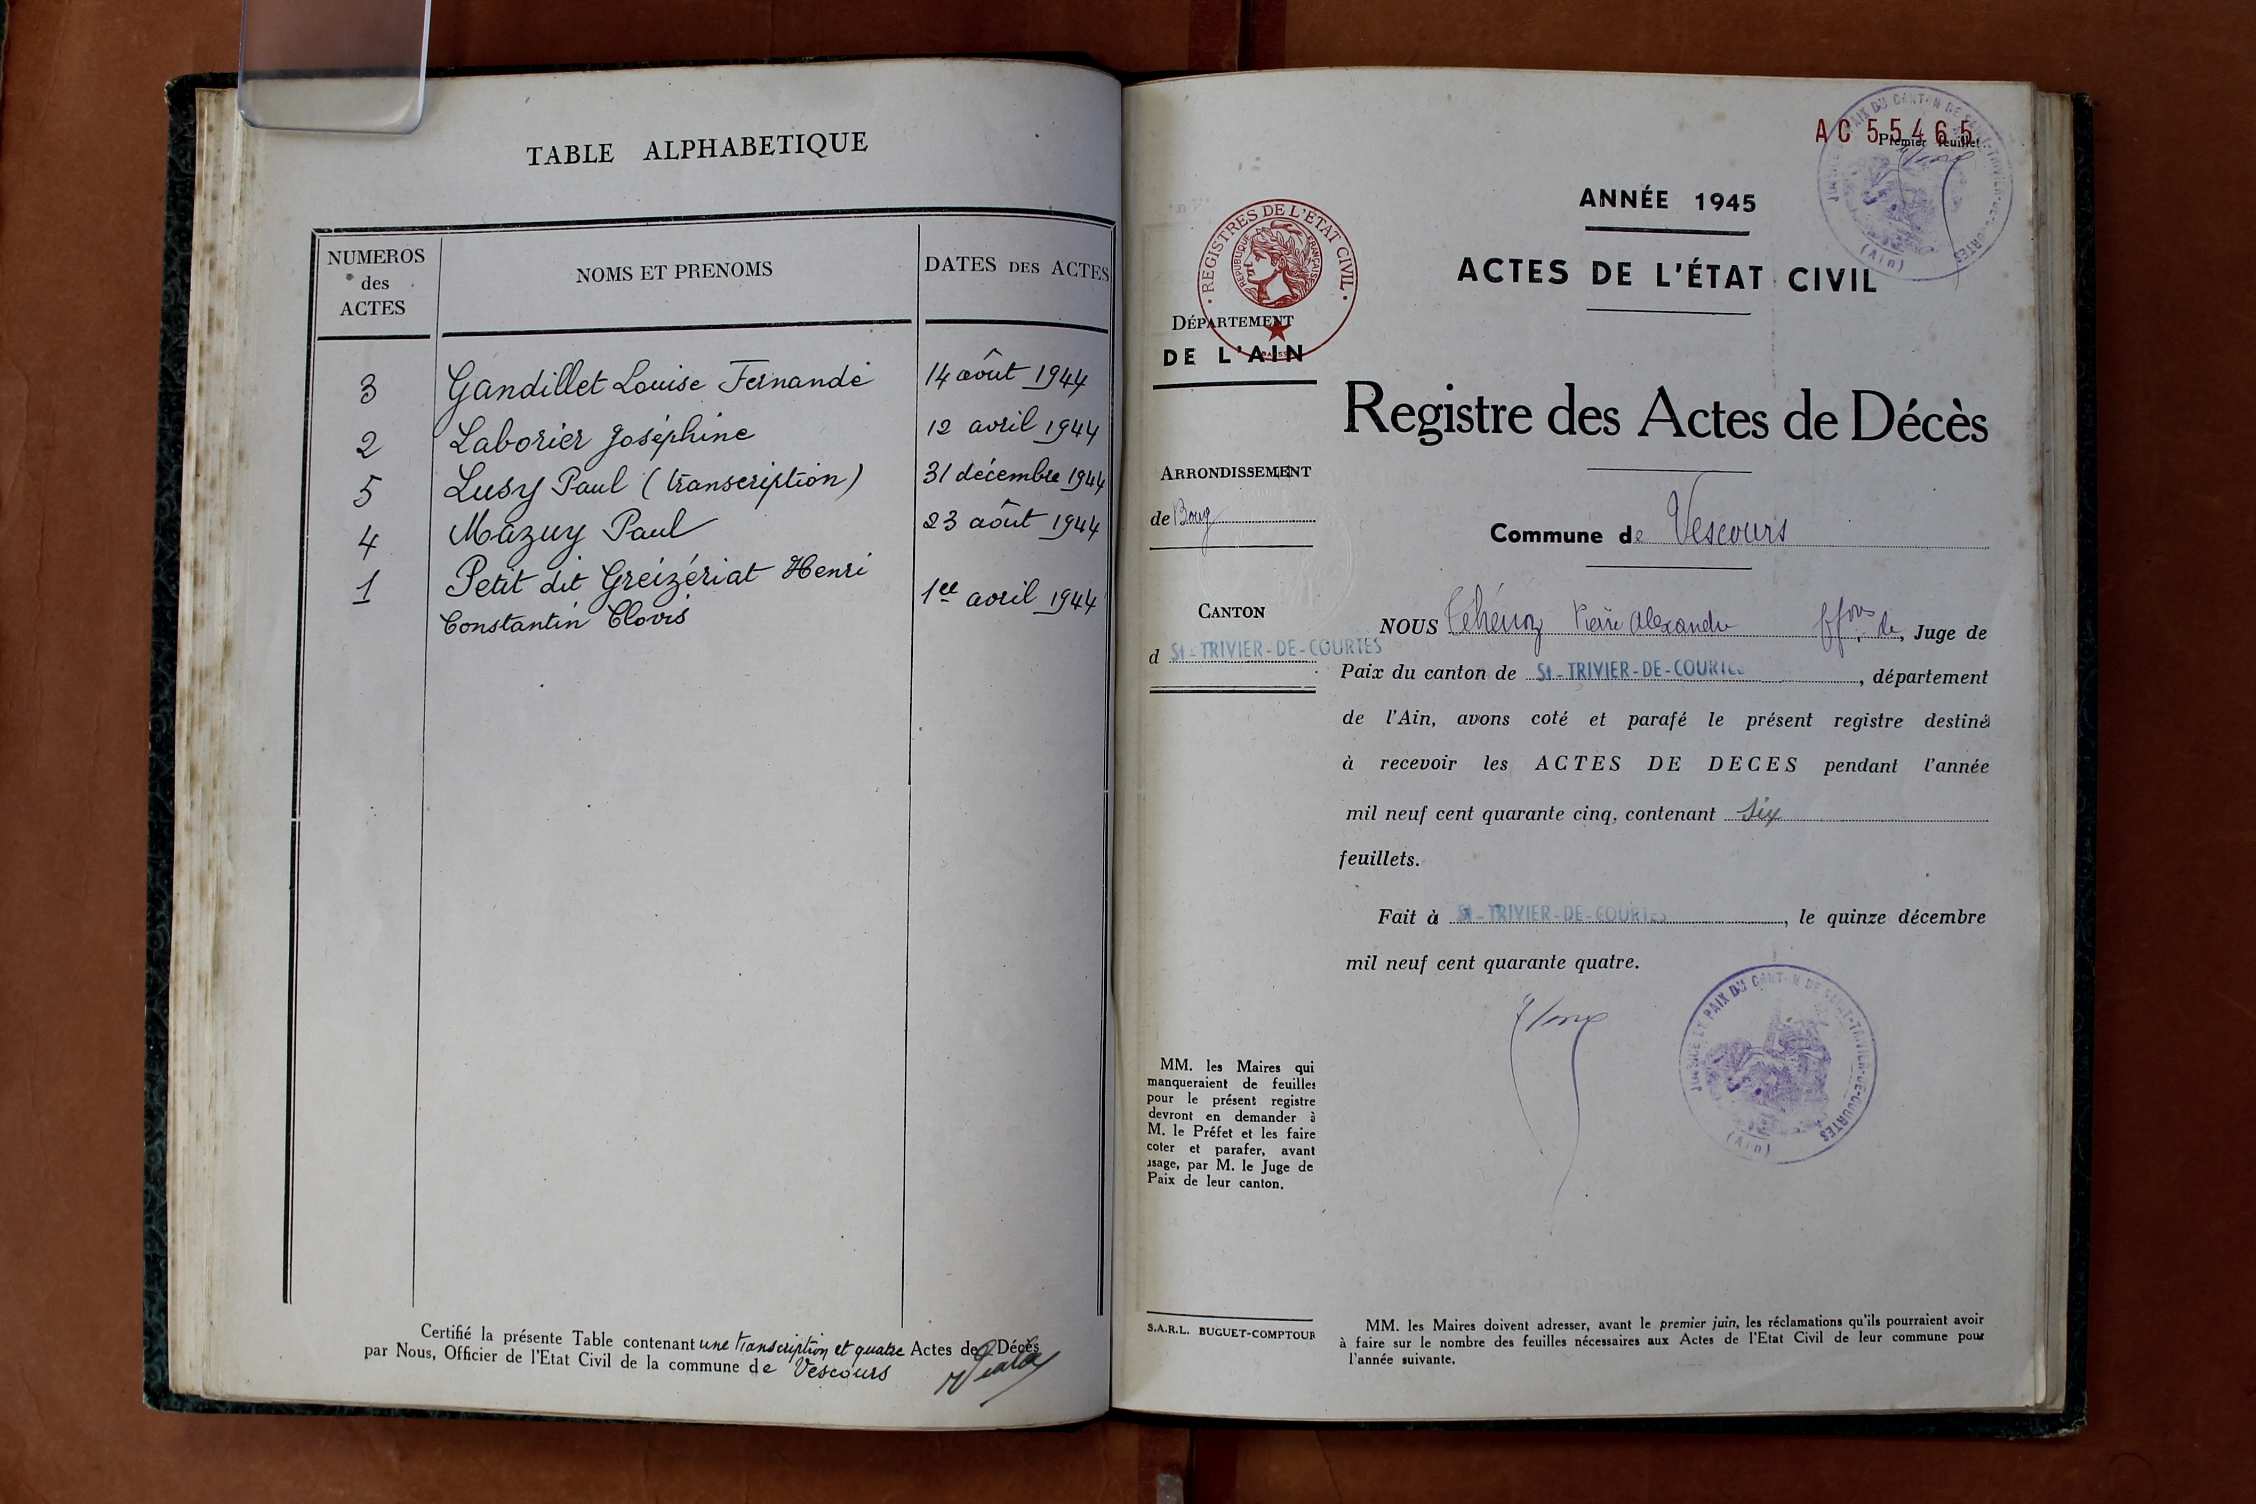 TABLE ALPHABETIQUE
NUMEROS des ACTES
NOMS ET PRENOMS
DATES DES ACTES
3 Gandillet Louise Fernande 14 août 1944
2 Laborier Joséphine 12 avril 1944
5 Lusy Paul (transcription) 31 décembre 1944
4 Mazuy Paul 23 août 1944
1 Petit dit Greizériat Henri
Constantin Clovis 1er avril 1944
Certifié la présente Table contenant une transcription et quatre Actes de Décès
par Nous, Officier de l'Etat Civil de la commune de Vescours
AC 55465
Premier feuillet
JUSTICE DE PAIX DU CANTON DE SAINT-TRIVIER-DE-COURTES
(Ain)
ANNÉE 1945
ACTES DE L'ÉTAT CIVIL
REGISTRES DE L'ETAT CIVIL
REPUBLIQUE FRANÇAISE
DÉPARTEMENT
DE L'AIN
Registre des Actes de Décès
ARRONDISSEMENT
de Bourg
Commune de Vescours
CANTON
d St-TRIVIER-DE-COURTES
NOUS Pierre Alexandre ffons de, Juge de
Paix du canton de St-TRIVIER-DE-COURTES, département
de l'Ain, avons coté et parafé le présent registre destiné
à recevoir les ACTES DE DECES pendant l'année
mil neuf cent quarante cinq, contenant six
feuillets.
Fait à St-TRIVIER-DE-COURTES, le quinze décembre
mil neuf cent quarante quatre.
JUSTICE DE PAIX DU CANTON DE SAINT-TRIVIER-DE-COURTES
(Ain)
MM. les Maires qui
manqueraient de feuilles
pour le présent registre
devront en demander à
M. le Préfet et les faire
coter et parafer, avant
usage, par M. le Juge de
Paix de leur canton.
S.A.R.L. BUGUET-COMPTOUR
MM. les Maires doivent adresser, avant le premier juin, les réclamations qu'ils pourraient avoir
à faire sur le nombre des feuilles nécessaires aux Actes de l'Etat Civil de leur commune pour
l'année suivante.